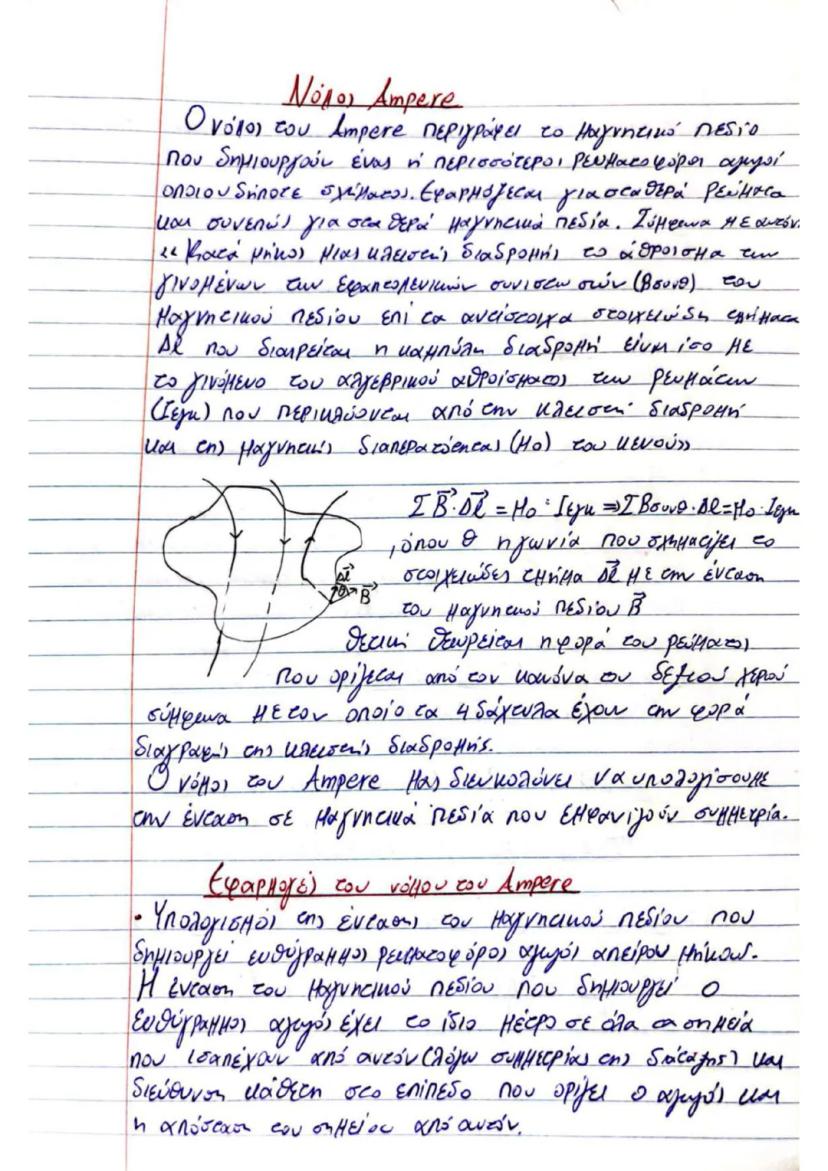 Νόμος Ampere
Ο νόμος του Ampere περιγράφει το μαγνητικό πεδίο
που δημιουργούν ένας ή περισσότεροι ρευματοφόροι αγωγοί
οποιουδήποτε σχήματος. Εφαρμόζεται για σταθερά ρεύματα
και συνεπώς για σταθερά μαγνητικά πεδία. Σύμφωνα με αυτόν:
«Κατά μήκος μιας κλειστής διαδρομής το άθροισμα των
γινομένων των εφαπτομενικών συνιστωσών (Βσυνθ) του
μαγνητικού πεδίου επί τα αντίστοιχα στοιχειώδη τμήματα
Δl που διαιρείται η καμπύλη διαδρομή είναι ίσο με
το γινόμενο του αλγεβρικού αθροίσματος των ρευμάτων
(Ιεγκ) που περικλύονται από την κλειστή διαδρομή
και της μαγνητικής διαπερατότητας (μο) του κενού»
Σ B⃗·Δl⃗ = μο · Ιεγκ ⇒ ΣΒσυνθ·Δl = μο·Ιεγκ
, όπου θ η γωνία που σχηματίζει το
στοιχειώδες τμήμα Δl⃗ με την ένταση
του μαγνητικού πεδίου B⃗
Δl⃗
θ B⃗
Θετική θεωρείται η φορά του ρεύματος
που ορίζεται από τον κανόνα του δεξιού χεριού
σύμφωνα με τον οποίο τα 4 δάχτυλα έχουν την φορά
διαγραφής της κλειστής διαδρομής.
Ο νόμος του Ampere μας διευκολύνει να υπολογίσουμε
την ένταση σε μαγνητικά πεδία που εμφανίζουν συμμετρία.
Εφαρμογές του νόμου του Ampere
• Υπολογισμός της έντασης του μαγνητικού πεδίου που
δημιουργεί ευθύγραμμος ρευματοφόρος αγωγός απείρου μήκους.
Η ένταση του μαγνητικού πεδίου που δημιουργεί ο
ευθύγραμμος αγωγός έχει το ίδιο μέτρο σε όλα τα σημεία
που ισαπέχουν από αυτόν (λόγω συμμετρίας της διάταξης) και
διεύθυνση κάθετη στο επίπεδο που ορίζει ο αγωγός και
η απόσταση του σημείου από αυτόν.